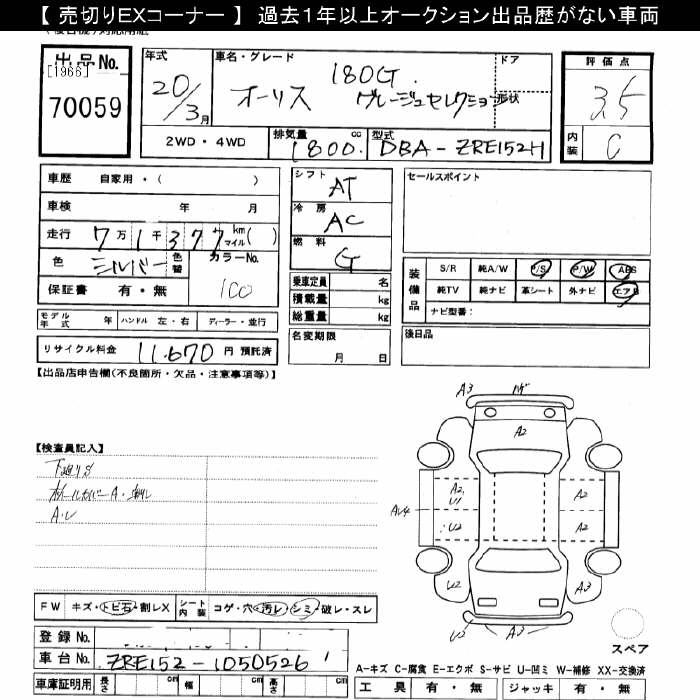 【 売切りEXコーナー 】 過去１年以上オークション出品歴がない車両
出品No.
[1966]
70059
年式
20/3月
車名・グレード
180G
オーリス
ドア
形状
評価点
3.5
内装
C
2WD・4WD
排気量
1800.
cc
型式
DBA-ZRE152H
車歴 自家用・( )
車検 年 月
走行 7万1千377 km マイル( )
色 シルバー 色替 カラーNo.
100
保証書 有・無
シフト AT
冷房 AC
燃料 G
乗車定員 名
積載量 kg
総重量 kg
セールスポイント
装備品
S/R 純A/W P/S P/W ABS
純TV 純ナビ 革シート 外ナビ エアB
ナビ型番：
モデル年式 年 ハンドル 左・右 ディーラー・並行
名変期限
月 日
後日品
リサイクル料金 11.670 円 預託済
【出品店申告欄(不良箇所・欠品・注意事項等)】
【検査員記入】
下廻りS
ホールカバーA・
A・U
A3
A2
A2
U1
A2
U2
A2
U2
A3
U2
A3
FW キズ・トビ石・割レX シート内装 コゲ・穴・汚レ・シミ・破レ・スレ
スペア
登録No.
車台No. ZRE152-1050526
A-キズ C-腐食 E-エクボ S-サビ U-凹ミ W-補修 XX-交換済
車庫証明用 長さ cm 幅 cm 高さ cm
工具 有・無 ジャッキ 有・無